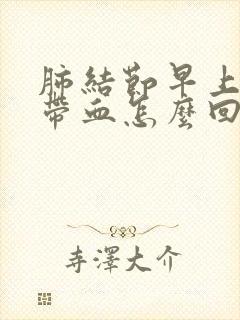 肺結節早上
帶血怎麼回
寺澤大介